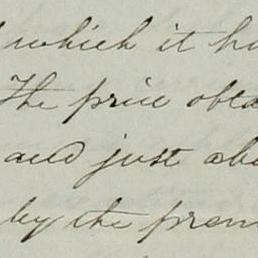 which it ha
The price obta
and just abo
by the prem